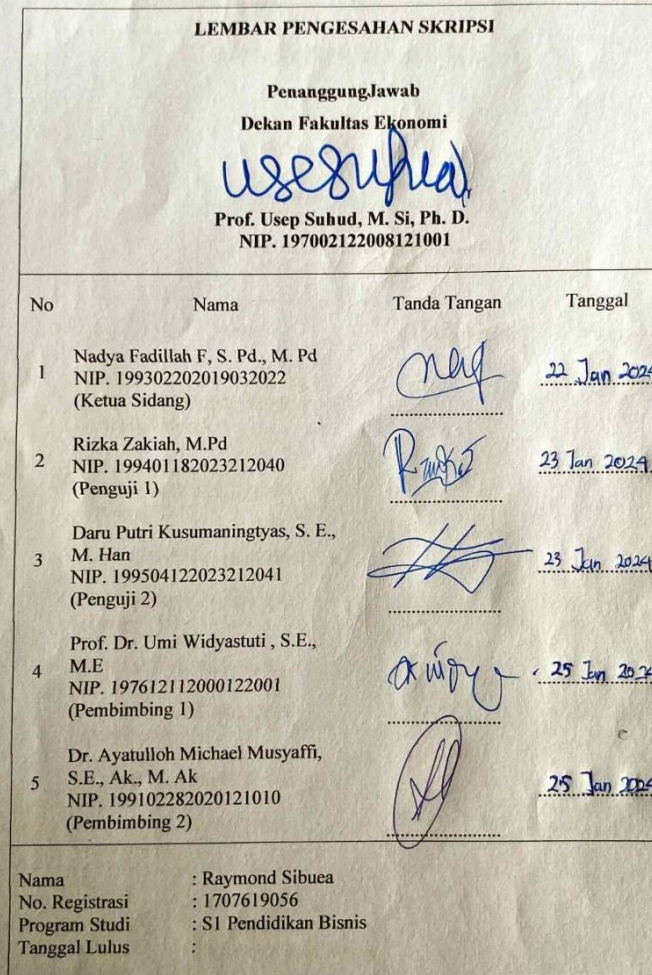 LEMBAR PENGESAHAN SKRIPSI
PenanggungJawab
Dekan Fakultas Ekonomi
Prof. Usep Suhud, M. Si, Ph. D.
NIP. 197002122008121001
No Nama Tanda Tangan Tanggal
1 Nadya Fadillah F, S. Pd., M. Pd
NIP. 199302202019032022
(Ketua Sidang)
22 Jan 2024
2 Rizka Zakiah, M.Pd
NIP. 199401182023212040
(Penguji 1)
23 Jan 2024
3 Daru Putri Kusumaningtyas, S. E.,
M. Han
NIP. 199504122023212041
(Penguji 2)
23 Jan 2024
4 Prof. Dr. Umi Widyastuti , S.E.,
M.E
NIP. 197612112000122001
(Pembimbing 1)
25 Jan 2024
5 Dr. Ayatulloh Michael Musyaffi,
S.E., Ak., M. Ak
NIP. 199102282020121010
(Pembimbing 2)
25 Jan 2024
Nama : Raymond Sibuea
No. Registrasi : 1707619056
Program Studi : S1 Pendidikan Bisnis
Tanggal Lulus :